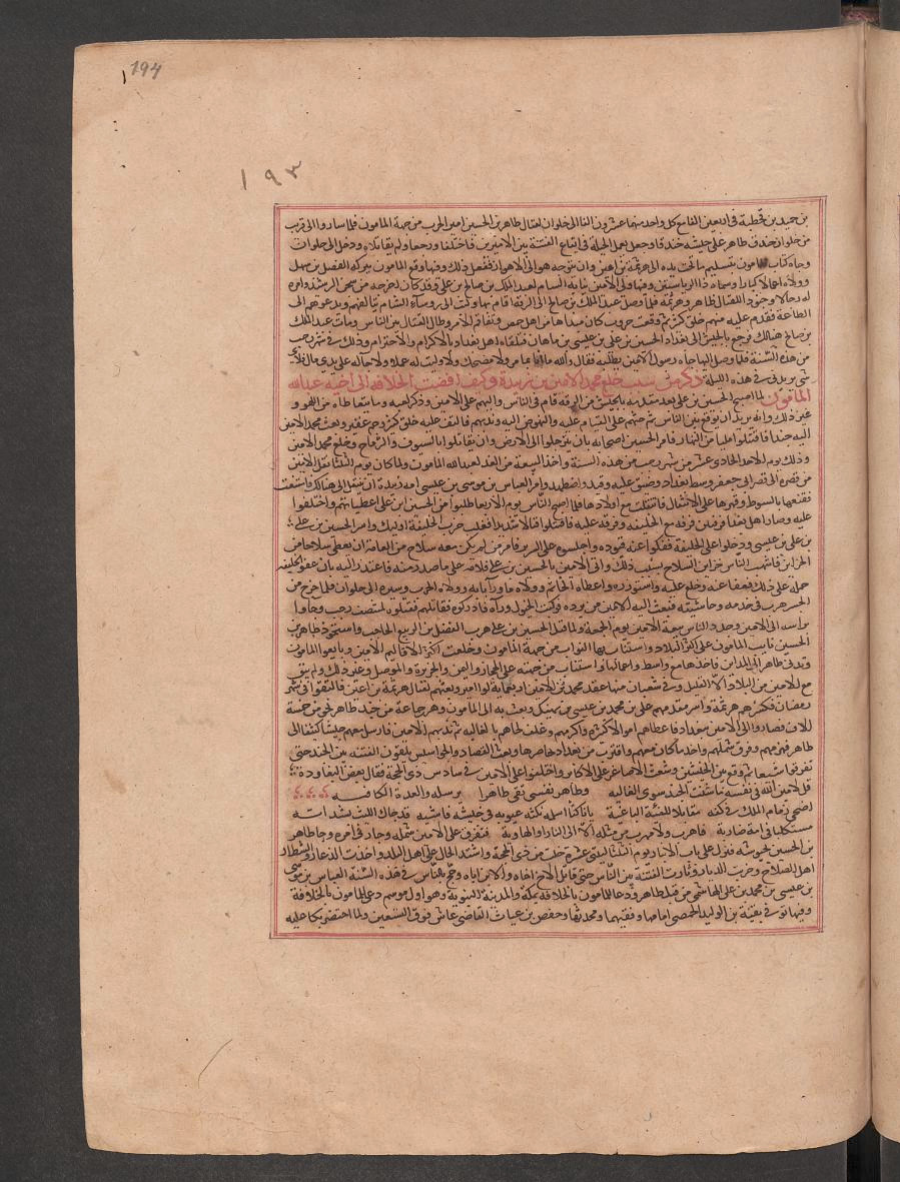 194
١٩٣
بن حميد بن قحطبة في اربعين الفا مع كل واحد منهما عشرون الفا الى حلوان لقتال طاهر بن الحسين امير الحرب من جهة المامون فلما سارو الى قرب
من حلوان خندق طاهر على جيشه خندقا وجعل يعمل الحيلة في ايقاع الفتنة بين الاميرين فاختلفا ورجعا ولم يقاتلاه ودخل الى حلوان
وجاه كتاب المامون بتسليم ما تحت يده الى هرثمة بن اعين وان يتوجه هو الى الاهواز ففعل ذلك وفيها رفع المامون منزلة الفضل بن سهل
وولاه اعمالا كبارا وسماه ذا الرياستين وفيها ولى الامين نيابة الشام لعبد الملك بن صالح بن علي وقد كان اخرجه من سجن الرشيد وامره
له رجالا وجنودا لقتال طاهر وهرثمة فلما وصل عبد الملك بن صالح الى الرقة اقام بها وكتب الى روساء الشام يتالفهم ويدعوهم الى
الطاعة فقدم عليه منهم خلق كثير ثم وقعت حروب كان مبداها من اهل حمص وتفاقم الامر وطال القتال بين الناس ومات عبد الملك
بن صالح هنالك فرجع بالجيش الى بغداد الحسين بن علي بن عيسى بن ماهان فتلقاه اهل بغداد بالاكرام والاحترام وذلك في شهر رجب
من هذه السنة فلما وصل اليها جاه رسول الامين يطلبه فقال والله ما انا بمسامر ولا مضحك ولا وليت له عملا ولا جبا له على يدي مال فلاي
شي يريدني في هذه الليلة ذكر من سبب خلع محمد الامين بن زبيدة وكيف افضت الخلافة الى اخيه عبد الله
المامون لما اصبح الحسين بن علي بعد مقدمه بالجيش من الرقه قام في الناس والبهم على الامين وذكر لعبه وما يتعاطاه من اللهو و
غير ذلك وانه يريد ان يوقع بين الناس ثم حثهم على القيام عليه والنهوض اليه وندبهم فالتف عليه خلق كثير وجم غفير وبعث محمد الامين
اليه جندا فاقتتلوا مليا من النهار فامر الحسين اصحابه بان يترجلوا الى الارض وان يقاتلوا بالسيوف والرماح وخلع محمد الامين
وذلك يوم الاحد الحادي عشر من شهر رجب من هذه السنة واخذ البيعة من الغد لعبد الله المامون ولما كان يوم الثلثا نقل الامين
من قصره الى قصر ابي جعفر وسط بغداد وضيق عليه وقيده واضطهده وامر العباس بن موسى بن عيسى امه زبيدة ان تنتقل الى هنالك فامتنعت
فقنعها بالسوط وقهرها على الانتقال فانتقلت مع اولادها فلما اصبح الناس يوم الاربعا طلبوا من الحسين ابن علي اعطياتهم واختلفوا
عليه وصار اهل بغداد فرقتين فرقة مع الخليفة وفرقة عليه فاقتتلوا قتالا شديدا فغلب حزب الخليفة اوليك واسر الحسين بن علي
بن علي بن عيسى ودخلوا على الخليفة ففكوا عنه قيوده واجلسوه على السرير فامر من لم يكن معه سلاح من العامة ان يعطى سلاحا من
الخزاين فانتهب الناس خزاين السلاح بسبب ذلك واتى الامين بالحسين بن علي فلامه على ما صدر منه فاعتذر اليه بان عفو الخليفه
حمله على ذلك فعفا عنه وخلع عليه واستوزره واعطاه الخاتم وولاه ماورآ بابه وولاه الحرب وسيره الى حلوان فلما خرج من
الجسر هرب في خدمه وحاشيته فبعث اليه الامين من يرده فركبت الخيول وراه فادركوه فقاتلهم فقتلوه لمنتصف رجب وجاوا
براسه الى الامين وجدد الناس بيعة الامين يوم الجمعة ولما قتل الحسين بن علي هرب الفضل بن الربيع الحاجب واستحوذ طاهر بن
الحسين نايب المامون على اكثر البلاد واستناب بها النواب من جهة المامون وخلعت اكثر الاقاليم الامين وبايعوا المامون
وتدنى طاهر الى المداين فاخذها مع واسط واعمالها واستناب من جهته على الحجاز واليمن والجزيرة والموصل وغير ذلك ولم يبق
مع الامين من البلاد الا القليل وفي شعبان منها عقد محمد بن الامين اربعماية لوا امير وبعثهم لقتال هرثمة بن اعين فالتقوا في شهر
رمضان فكسرهم هرثمة واسر مقدمهم علي بن محمد بن عيسى بن نهيك وبعث به الى المامون وهرب جماعة من جند طاهر نحو من خمسة
الاف فصاروا الى الامين ببغداد فاعطاهم اموالا كثيرة واكرمهم وغلف لحاهم بالغالية ثم ندبهم الامين فارسل معهم جيشا كثيفا الى
طاهر فهزمهم وفرق شملهم واخذ ما كان معهم واقترب من بغداد فحاصرها وبعث القصاد والجواسيس يلقون الفتنه بين الجند حتى
تفرقوا شيعا ثم وقع بين الجيشين وشعبت الاصاغر على الاكابر واختلفوا على الامين في سادس ذي الحجة فقال بعض البغاددة
قل لامين الله في نفسه ما شتت الجند سوى الغاليه وطاهر نفسي تقي طاهرا برسله والعدة الكافيه
اضحى زمام الملك في كفه مقاتلا للفئة الباغية يا ناكثا اسلمه نكثه عيوبه في خبثه فاشيه قد جاك الليث بشداته
مستكلبا في امة ضاريه فاهرب ولا مهرب من مثله الا الى النار او الهاوية فتفرق على الامين شمله وحار في امره وجا طاهر
بن الحسين بجيوشه فنزل على باب الانبار يوم الثلثا لثنتي عشرة خلت من ذي الحجة واشتد الحال على اهل البلد واخذت الدعار والشطار
اهل الصلاح وخربت الديار وثارت الفتنة بين الناس حتى قاتل الاخ اخاه والابن اباه وحج بالناس في هذه السنة العباس بن موسى
بن عيسى بن محمد بن علي الهاشمي من قبل طاهر ودعا للمامون بالخلافة بمكة والمدينة النبوية وهو اول موسم دعي للمامون بالخلافة
وفيها توفي بقية بن الوليد الحمصي امامها وفقيهها ومحدثها وحفص بن غياث القاضي عاش فوق التسعين ولما احتضر بكا عليه